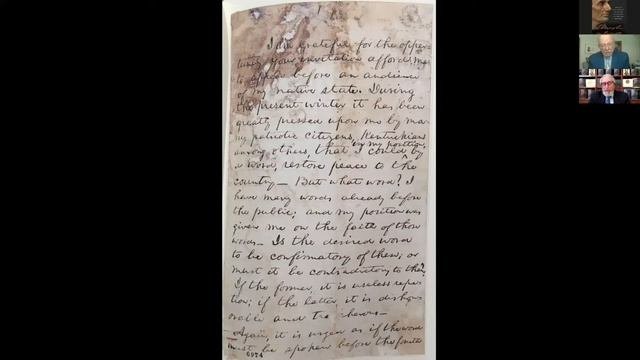 I am grateful for the oppor-
tunity your invitation affords me
to appear before an audience
of my native state. During
the present winter it has been
greatly pressed upon me by ma-
ny patriotic citizens, Kentuckians
among others, that I could by my position, by
a word, restore peace to the
country— But what word? I
have many words already before
the public; and my position was
given me on the faith of those
words— Is the desired word
to be confirmatory of these; or
must it be contradictory to them?
If the former, it is useless repeti-
tion; if the latter, it is dishon-
orable and
Again, it is urged as if the word
must be spoken before the fourth
6974